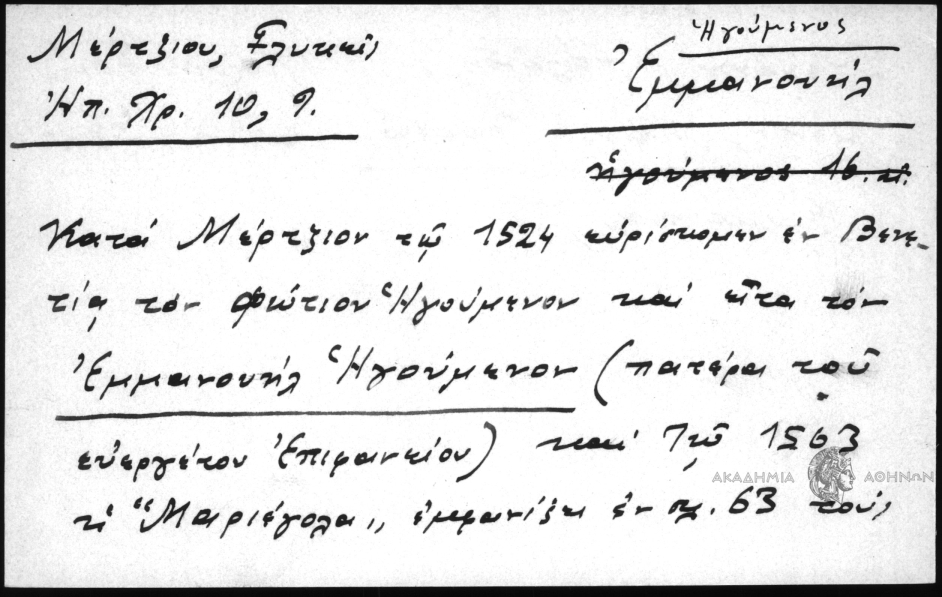 Μέρτζιου, 
Ἠπ. Χρ. 10, 9.
Ἡγούμενος
Ἐμμανουὴλ
ἡγούμενος 16. αἰ.
Κατά Μέρτζιον τῷ 1524 εὑρίσκομεν ἐν Βενε-
τίᾳ τον Φώτιον Ἡγούμενον καί εἶτα τόν
Ἐμμανουήλ Ἡγούμενον (πατέρα τοῦ
εὐεργέτου Ἐπιφανείου) καί τῷ 1563
ΑΚΑΔΗΜΙΑ ΑΘΗΝΩΝ
ἡ "Μαριέγολα,, ἐμφανίζει ἐν σελ. 63 τούς